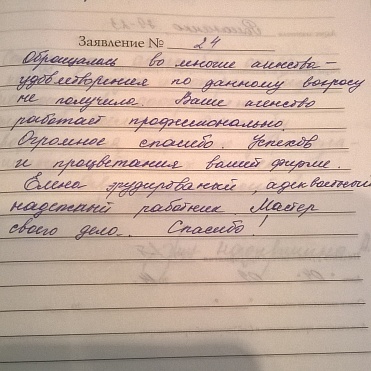 Заявление № 24
Обращалась во многие агенства –
удовлетворения по данному вопросу
не получила. Ваше агенство
работает профессионально.
Огромное спасибо. Успехов
и процветания вашей фирме.
Елена эрудированый, адекватный
надежный работник Мастер
своего дела.. Спасибо!